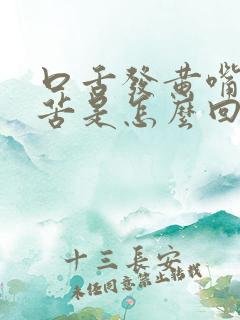 口舌發黄嘴
苦是怎麼回
十三長安
未經同意禁止轉載